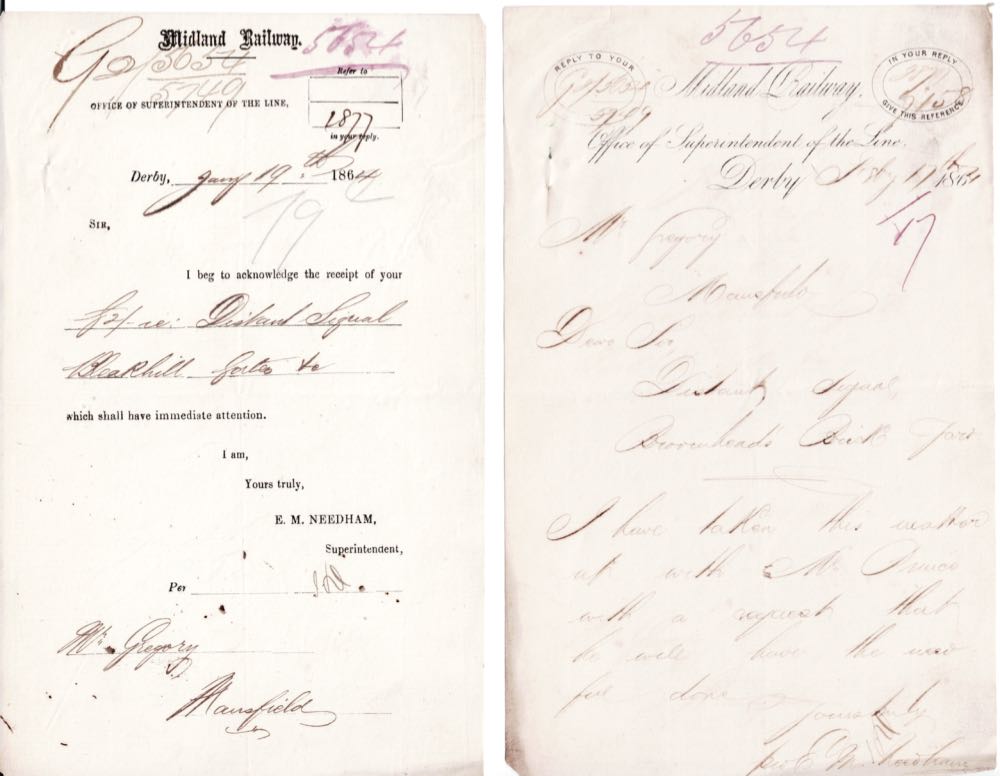 Midland Railway.
5654
G2/5654
5749
Refer to
OFFICE OF SUPERINTENDENT OF THE LINE,
2877
in your reply.
Derby, Jany 19th 1864
19
SIR,
I beg to acknowledge the receipt of your
re: Distant Signal
Bleakhill Gates &c
which shall have immediate attention.
I am,
Yours truly,
E. M. NEEDHAM,
Superintendent,
Per
Mr. Gregory
Mansfield
5654
REPLY TO YOUR
IN YOUR REPLY
GIVE THIS REFERENCE
Midland Railway.
5749
Office of Superintendent of the Line,
Derby 17th 1864
17
Mr Gregory
Mansfield
Dear Sir,
Distant Signal,
Brick Yard
I have taken this matter
up with Mr
with a request that
he will have the
done
Yours truly
E. M. Needham